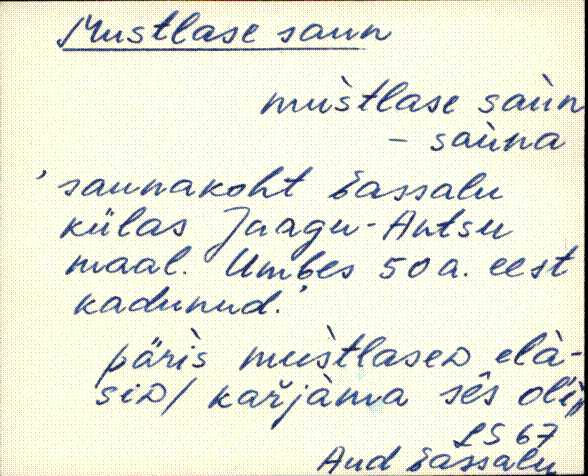 Mustlase saun
mùstlase saùn
– saùna
'saunakoht Sassalu
külas Jaagu-Antsu
maal. Umbes 50 a. eest
kadunud.'
päris mùstlaseD elà-
siD/ karjàma sês oliD
LS 67
And Sassalu